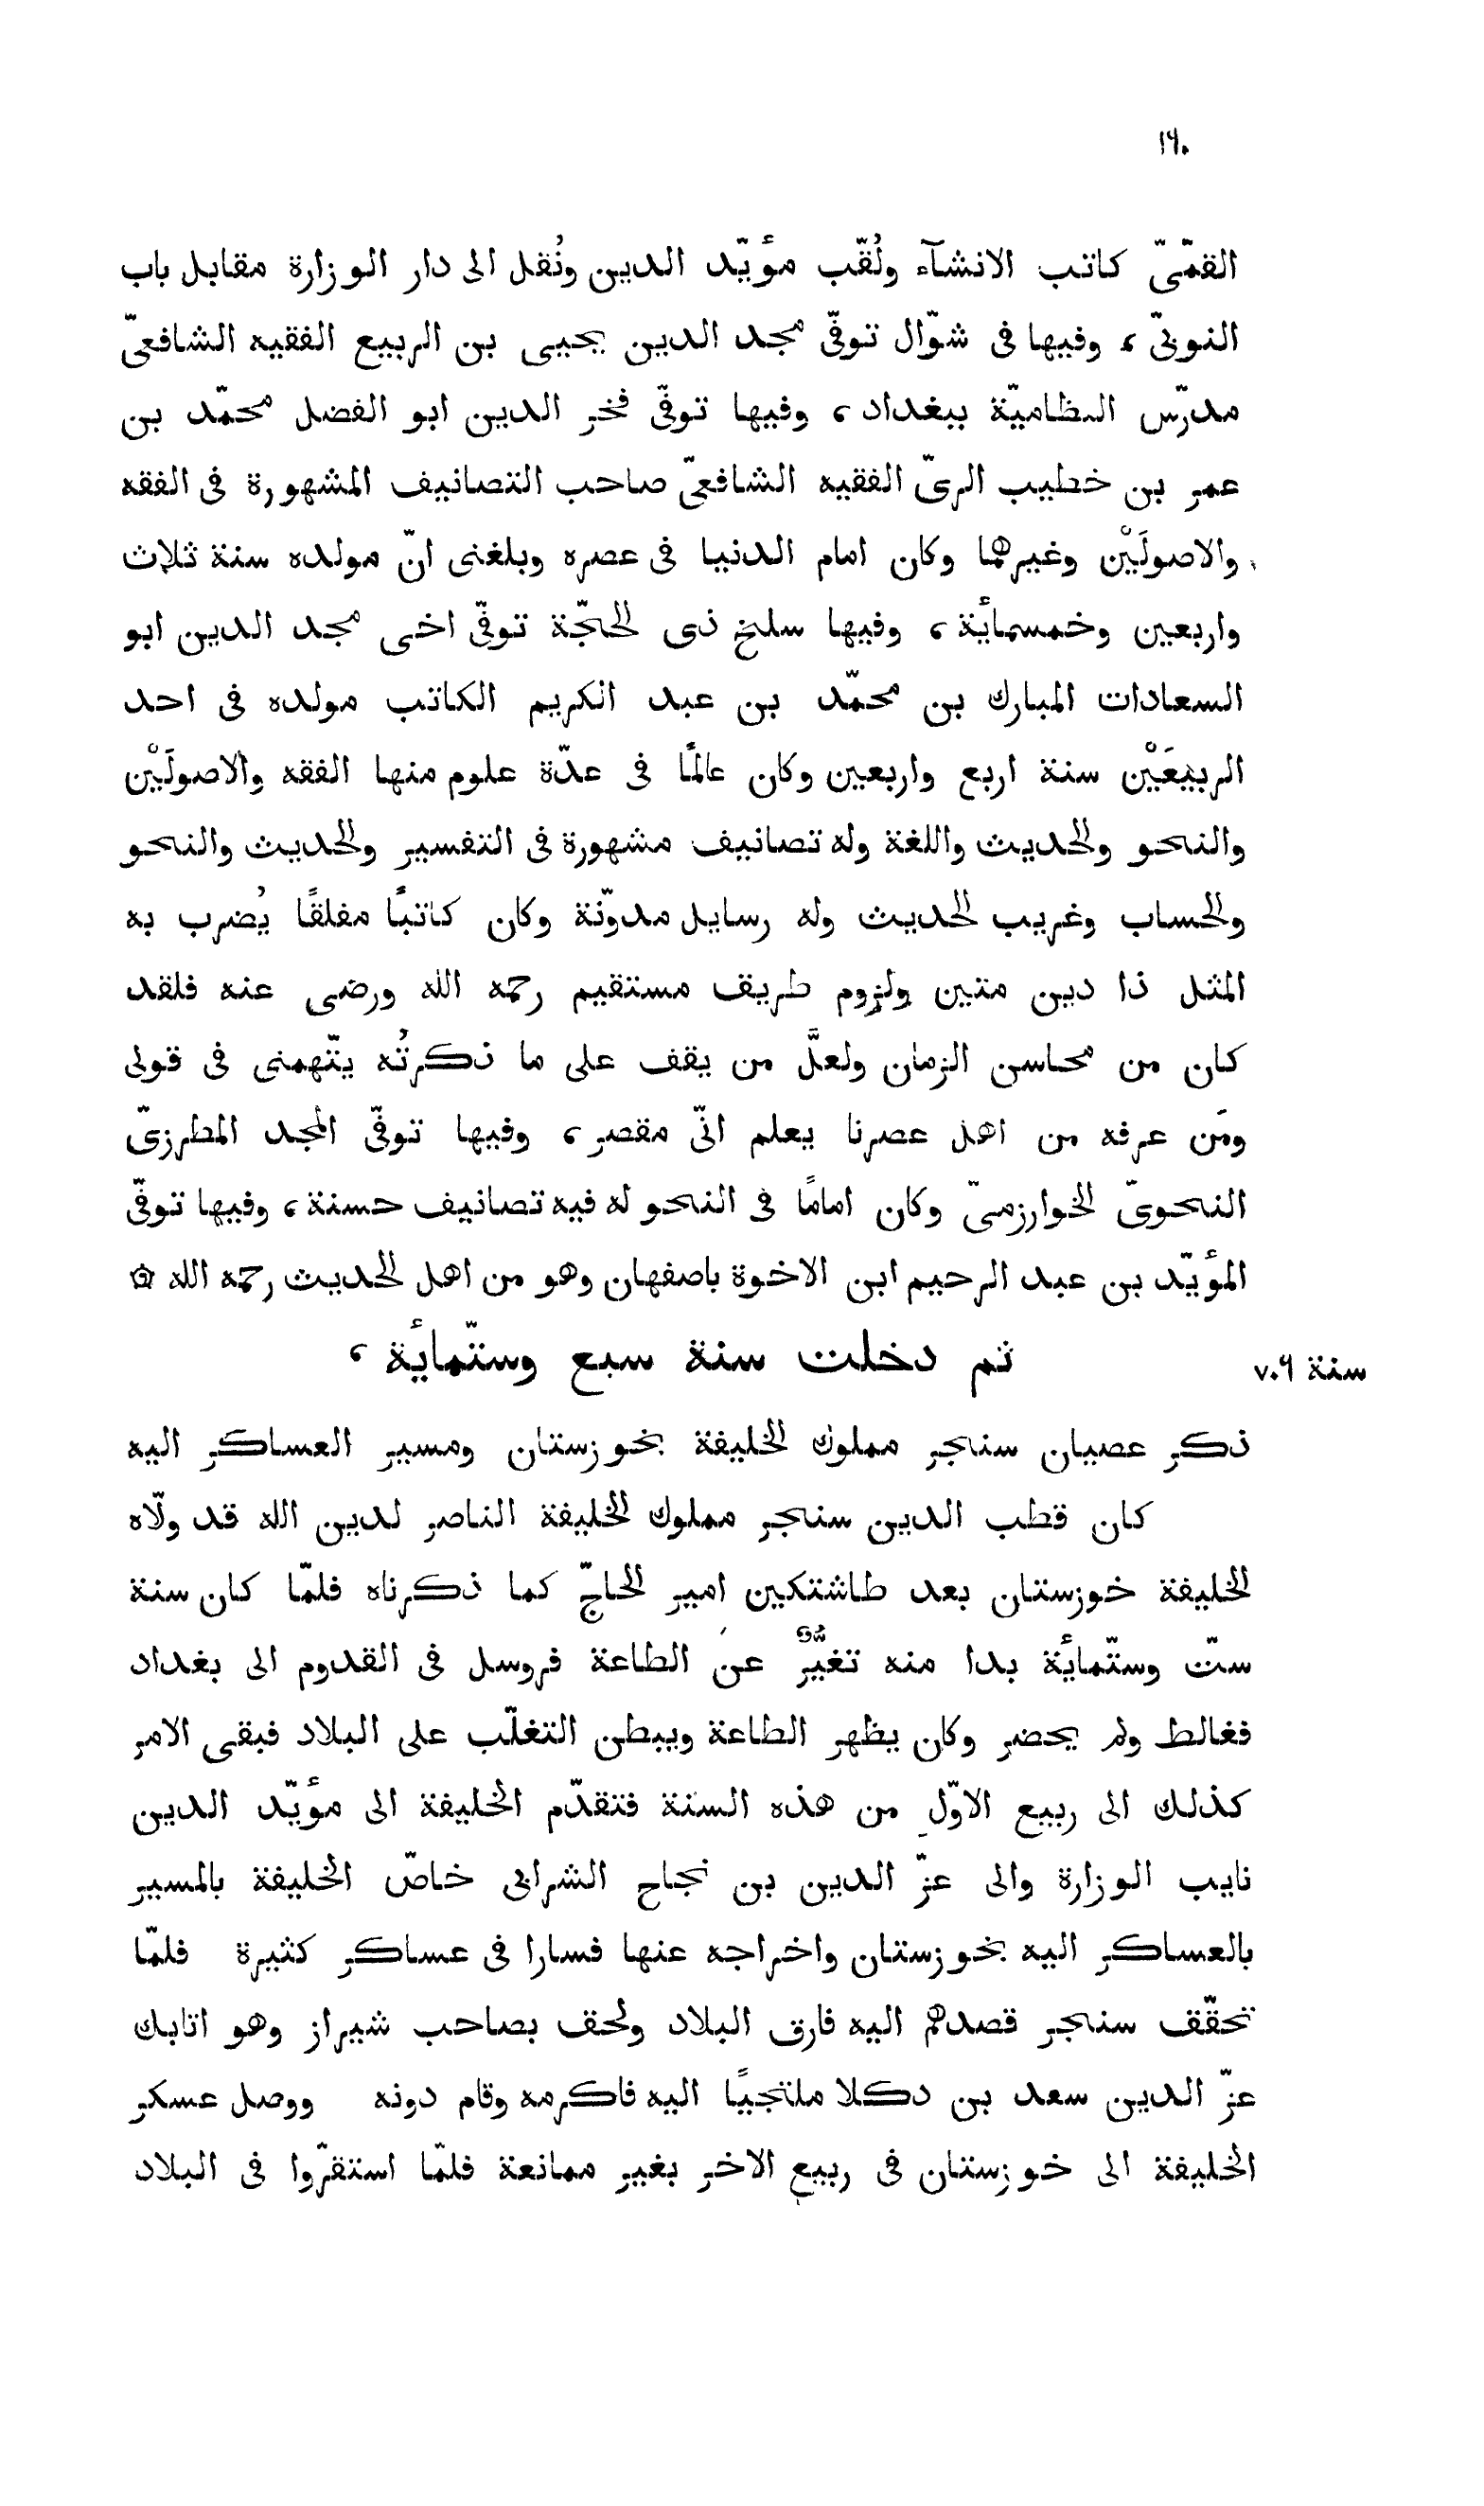 ١٩٠
القمّىّ كاتب الانشآء ولُقّب مؤيّد الدين ونُقل الى دار الوزارة مقابل باب
النوبىّ، وفيها فى شوّال توفّى مجد الدين يحيى بن الربيع الفقيه الشافعىّ
مدرّس النظاميّة ببغداد، وفيها توفّى فخر الدين ابو الفضل محمّد بن
عمر بن خطيب الرىّ الفقيه الشافعىّ صاحب التصانيف المشهورة فى الفقه
والاصولَيْن وغيرهما وكان امام الدنيا فى عصره وبلغنى انّ مولده سنة ثلاث
واربعين وخمسمائة، وفيها سلخ ذى الحجّة توفّى اخى مجد الدين ابو
السعادات المبارك بن محمّد بن عبد الكريم الكاتب مولده فى احد
الربيعَيْن سنة اربع واربعين وكان عالمًا فى عدّة علوم منها الفقه والاصولَيْن
والنحو والحديث واللغة وله تصانيف مشهورة فى التفسير والحديث والنحو
والحساب وغريب الحديث وله رسايل مدوّنة وكان كاتبًا مفلقًا يُضرب به
المثل ذا دين متين ولزوم طريق مستقيم رحمه الله ورضى عنه فلقد
كان من محاسن الزمان ولعلَّ من يقف على ما ذكرتُه يتّهمنى فى قولى
ومَن عرفه من اهل عصرنا يعلم انّى مقصر، وفيها توفّى المجد المطرزىّ
النحوىّ الخوارزمىّ وكان امامًا فى النحو له فيه تصانيف حسنة، وفيها توفّى
المؤيّد بن عبد الرحيم ابن الاخوة باصفهان وهو من اهل الحديث رحمه الله ۞
ثم دخلت سنة سبع وستّمائة،
سنة ٦٠٧
ذكر عصيان سنجر مملوك الخليفة بخوزستان ومسير العساكر اليه
كان قطب الدين سنجر مملوك الخليفة الناصر لدين الله قد ولّاه
الخليفة خوزستان بعد طاشتكين امير الحاجّ كما ذكرناه فلمّا كان سنة
ستّ وستّمائة بدا منه تغيُّرٌ عن الطاعة فروسل فى القدوم الى بغداد
فغالط ولم يحضر وكان يظهر الطاعة ويبطن التغلّب على البلاد فبقى الامر
كذلك الى ربيع الاوّل من هذه السنة فتقدّم الخليفة الى مؤيّد الدين
نايب الوزارة والى عزّ الدين بن نجاح الشرابى خاصّ الخليفة بالمسير
بالعساكر اليه بخوزستان واخراجه عنها فسارا فى عساكر كثيرة فلمّا
تحقّق سنجر قصدهم اليه فارق البلاد ولحق بصاحب شيراز وهو اتابك
عزّ الدين سعد بن دكلا ملتجيًا اليه فاكرمه وقام دونه ووصل عسكر
الخليفة الى خوزستان فى ربيع الاخر بغير ممانعة فلمّا استقرّوا فى البلاد